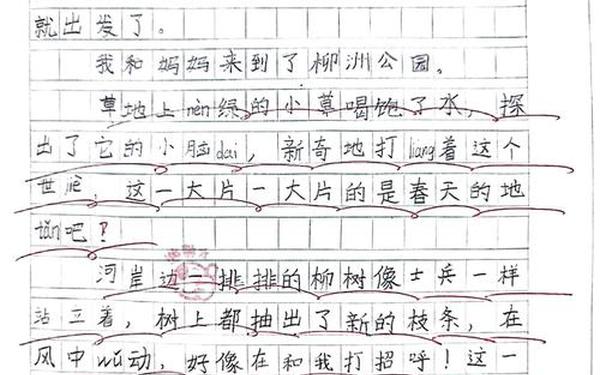 就出发了。
我和妈妈来到了柳洲公园。
草地上nèn绿的小草喝饱了水，探
出了它的小脑dai，新奇地打liang着这个
世jiè，这一大片一大片的是春天的地
tǎn吧？
河岸边一排排的柳树像士兵一样
站立着，树上都抽出了新的枝条，在
风中wǔ动，好像在和我打招呼！这一